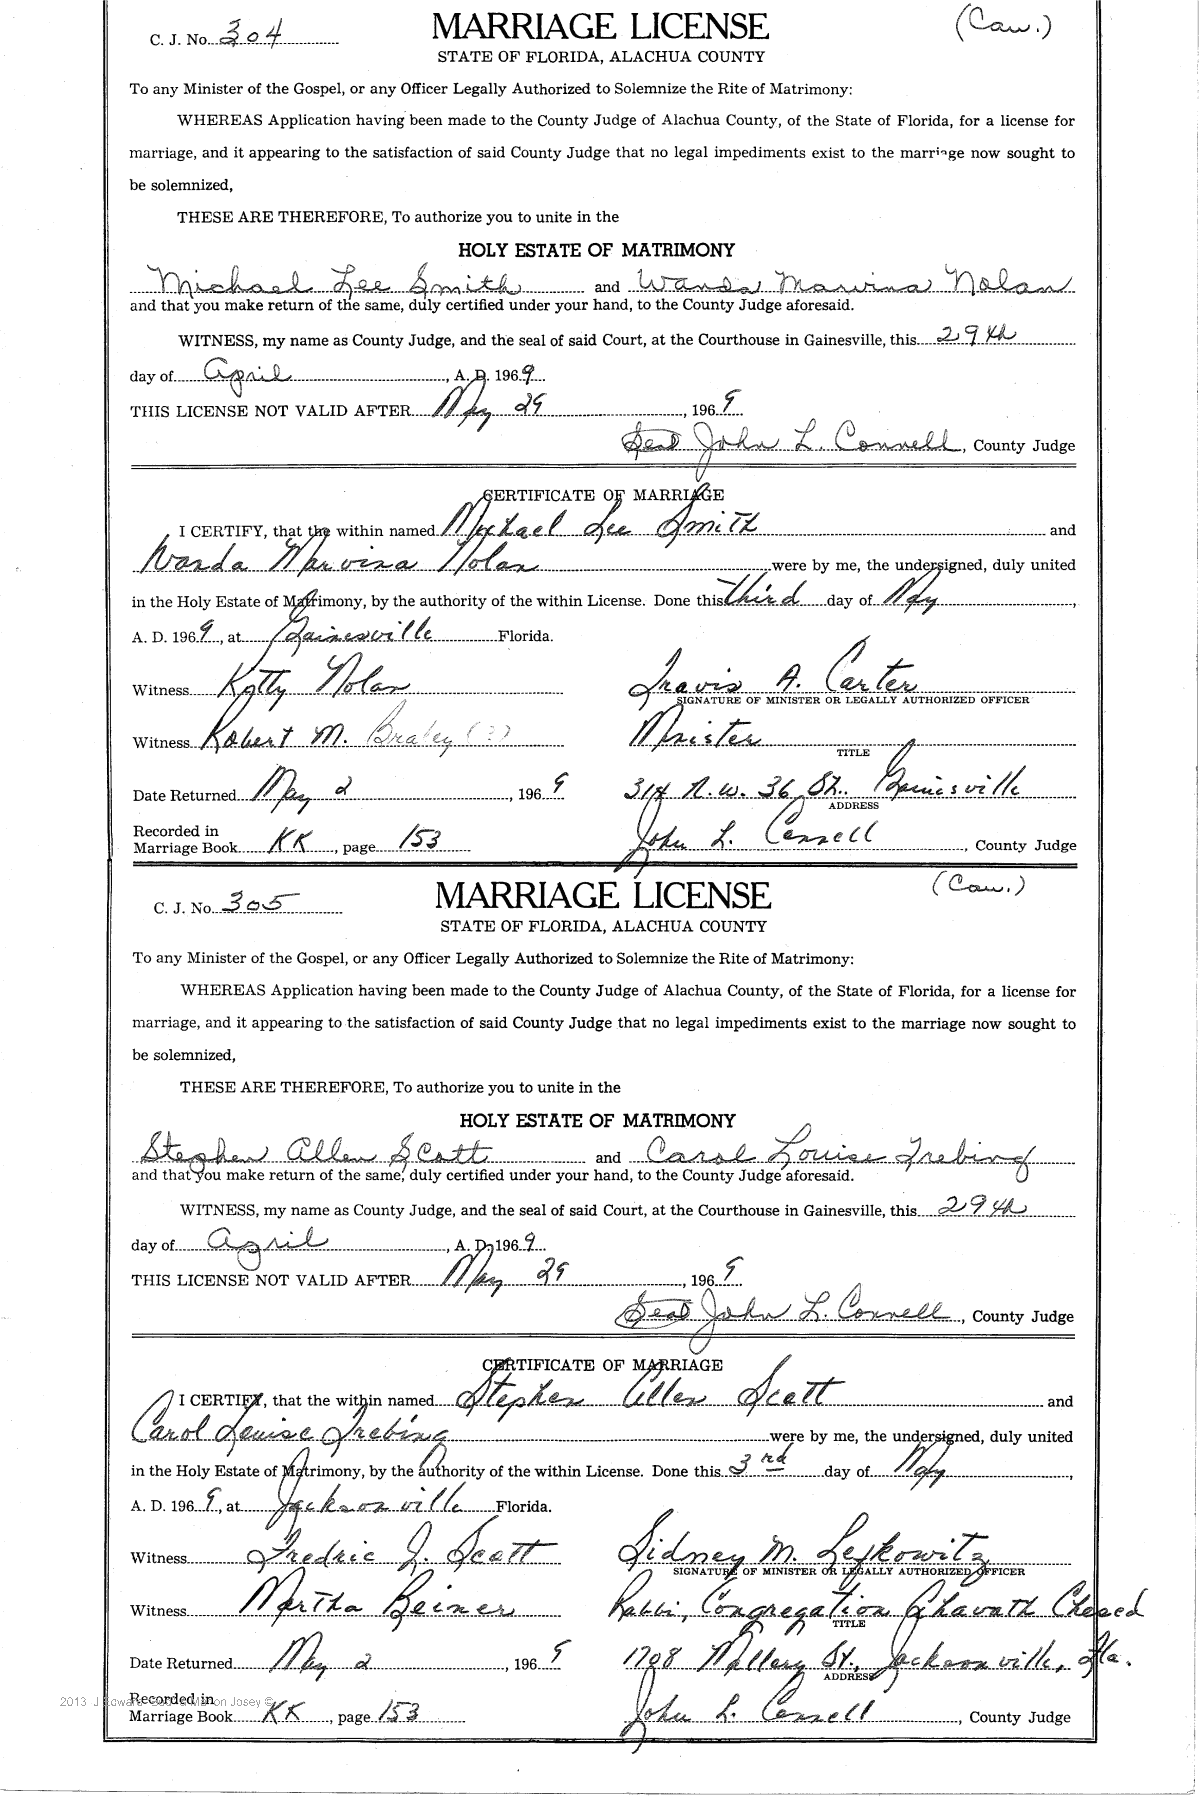 C. J. No. 304
MARRIAGE LICENSE
(Cau.)
STATE OF FLORIDA, ALACHUA COUNTY
To any Minister of the Gospel, or any Officer Legally Authorized to Solemnize the Rite of Matrimony:
WHEREAS Application having been made to the County Judge of Alachua County, of the State of Florida, for a license for
marriage, and it appearing to the satisfaction of said County Judge that no legal impediments exist to the marriage now sought to
be solemnized,
THESE ARE THEREFORE, To authorize you to unite in the
HOLY ESTATE OF MATRIMONY
Michael Lee Smith and Wanda Marvina Nolan
and that you make return of the same, duly certified under your hand, to the County Judge aforesaid.
WITNESS, my name as County Judge, and the seal of said Court, at the Courthouse in Gainesville, this 29th
day of April, A. D. 1969
THIS LICENSE NOT VALID AFTER May 29, 1969
Seal John L. Connell, County Judge
CERTIFICATE OF MARRIAGE
I CERTIFY, that the within named Michael Lee Smith and
Wanda Marvina Nolan were by me, the undersigned, duly united
in the Holy Estate of Matrimony, by the authority of the within License. Done this third day of May,
A. D. 1969, at Gainesville Florida.
Witness Katty Nolan
Travis A. Carter
SIGNATURE OF MINISTER OR LEGALLY AUTHORIZED OFFICER
Witness Robert M. Braley (?)
Minister
TITLE
Date Returned May 2, 1969
314 N.W. 36 St. Gainesville
ADDRESS
Recorded in
Marriage Book KK, page 153
John L. Connell, County Judge
C. J. No. 305
MARRIAGE LICENSE
(Cau.)
STATE OF FLORIDA, ALACHUA COUNTY
To any Minister of the Gospel, or any Officer Legally Authorized to Solemnize the Rite of Matrimony:
WHEREAS Application having been made to the County Judge of Alachua County, of the State of Florida, for a license for
marriage, and it appearing to the satisfaction of said County Judge that no legal impediments exist to the marriage now sought to
be solemnized,
THESE ARE THEREFORE, To authorize you to unite in the
HOLY ESTATE OF MATRIMONY
Stephen Allen Scott and Carol Louise Trebing
and that you make return of the same, duly certified under your hand, to the County Judge aforesaid.
WITNESS, my name as County Judge, and the seal of said Court, at the Courthouse in Gainesville, this 29th
day of April, A. D. 1969
THIS LICENSE NOT VALID AFTER May 29, 1969
Seal John L. Connell, County Judge
CERTIFICATE OF MARRIAGE
I CERTIFY, that the within named Stephen Allen Scott and
Carol Louise Trebing were by me, the undersigned, duly united
in the Holy Estate of Matrimony, by the authority of the within License. Done this 3rd day of May,
A. D. 1969, at Jacksonville Florida.
Witness Fredric J. Scott
Sidney M. Lefkowitz
SIGNATURE OF MINISTER OR LEGALLY AUTHORIZED OFFICER
Witness Martha Beiner
Rabbi, Congregation Ahavath Chesed
TITLE
Date Returned May 2, 1969
1708 Mallory St., Jacksonville, Fla.
ADDRESS
Recorded in
Marriage Book KK, page 153
John L. Connell, County Judge